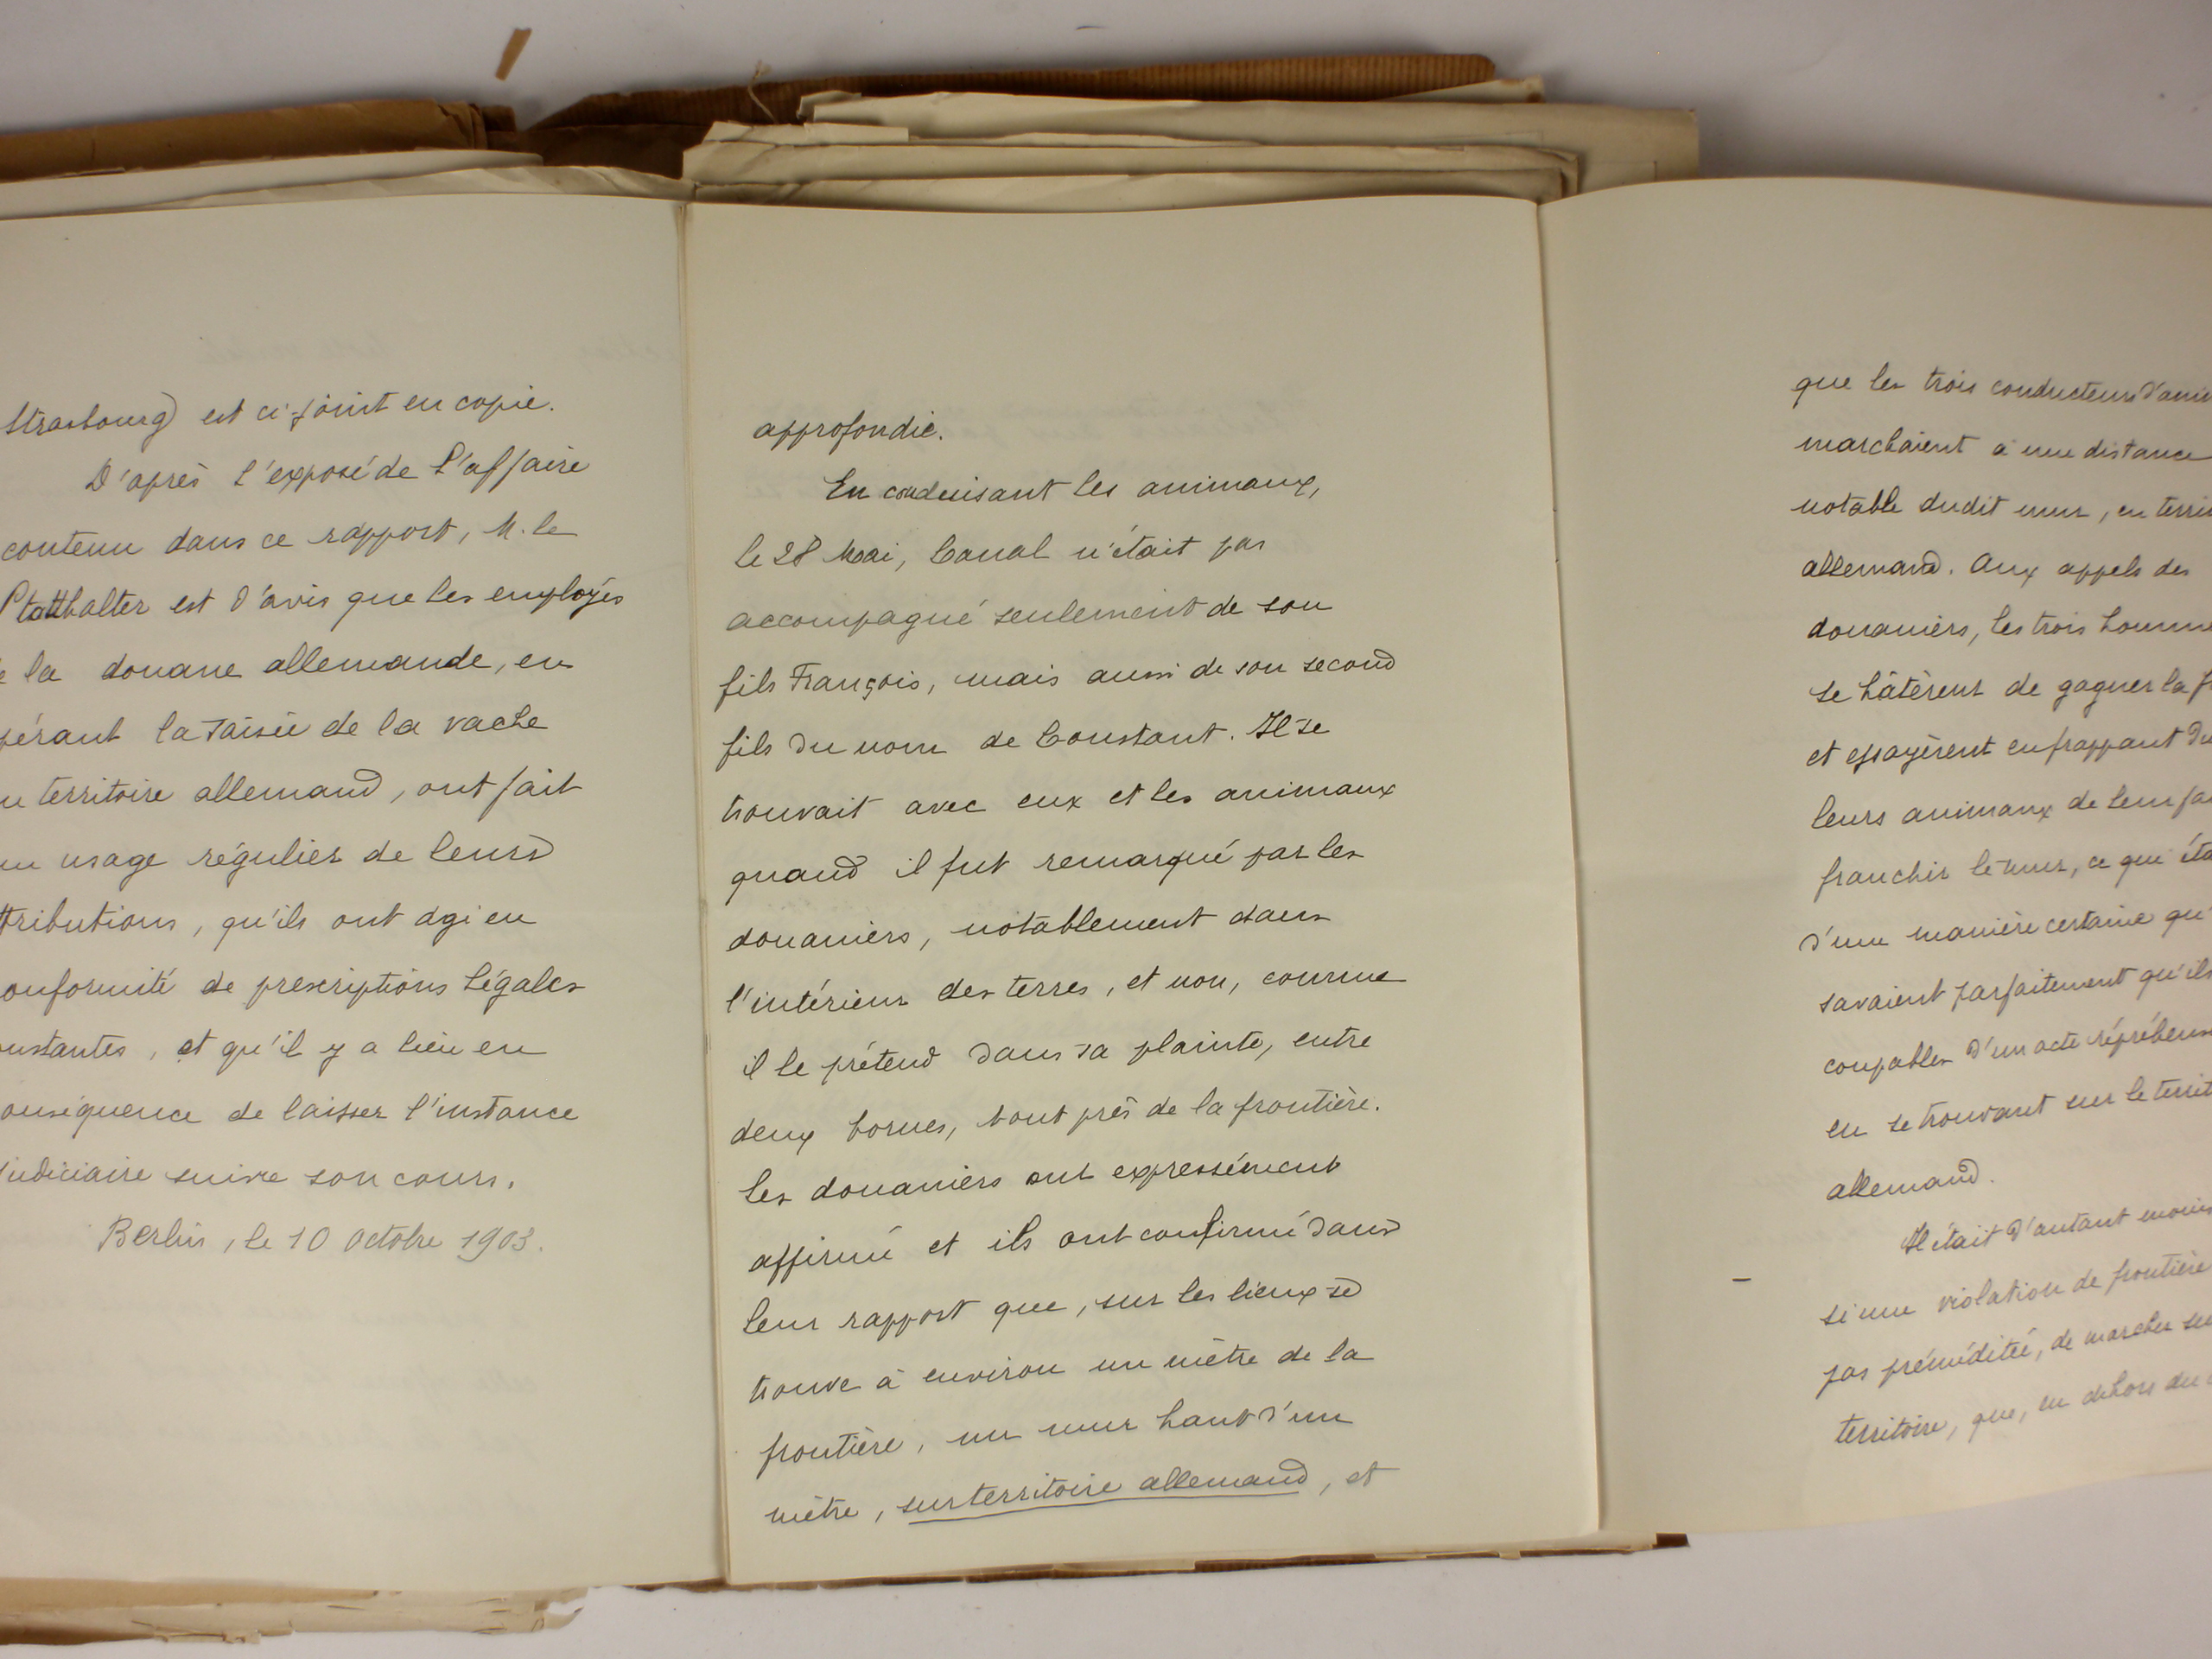 Strasbourg) est ci-joint en copie.
D'après l'exposé de l'affaire
contenu dans ce rapport, M. le
Statthalter est d'avis que les employés
la douane allemande, en
pérant la saisie de la vache
territoire allemand, ont fait
usage régulier de leurs
ttributions, qu'ils ont agi en
onformité de prescriptions légales
nstantes, et qu'il y a lieu en
onséquence de laisser l'instance
judiciaire suivre son cours.
Berlin, le 10 octobre 1903.
approfondie.
En conduisant les animaux,
le 28 Mai, Canal n'était pas
accompagné seulement de son
fils François, mais aussi de son second
fils du nom de Constant. Il se
trouvait avec eux et les animaux
quand il fut remarqué par les
douaniers, notablement dans
l'intérieur des terres, et non, comme
il le prétend dans sa plainte, entre
deux bornes, tout près de la frontière.
Les douaniers ont expressément
affirmé et ils ont confirmé dans
leur rapport que, sur les lieux se
trouve à environ un mètre de la
frontière, un mur haut d'un
mètre, sur territoire allemand, et
que les trois conducteurs d'anim
marchaient à une distance
notable dudit mur, en territ
allemand. Aux appels des
douaniers, les trois homme
se hâtèrent de gagner la f
et essayèrent en frappant du
leurs animaux de leur fai
franchir le mur, ce qui éta
d'une manière certaine qu'
savaient parfaitement qu'ils
coupables d'un acte répréhens
en se trouvant sur le territ
allemand.
Il était d'autant moins
si une violation de frontière
pas préméditée, de marcher su
territoire, que, en dehors du